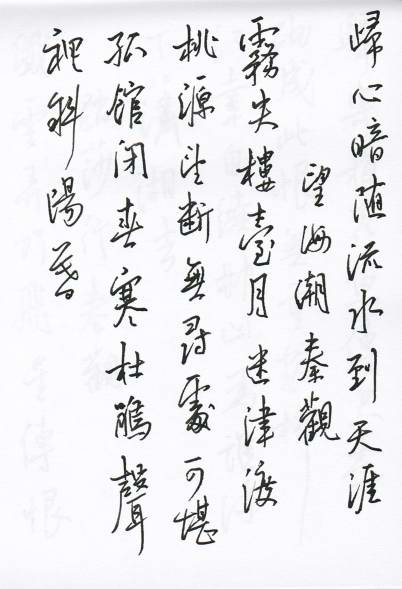 歸心暗随流水到天涯
望海潮秦觀
霧失樓臺月迷津渡
桃源望斷無尋處可堪
孤館閉春寒杜鵑聲
裡斜陽暮